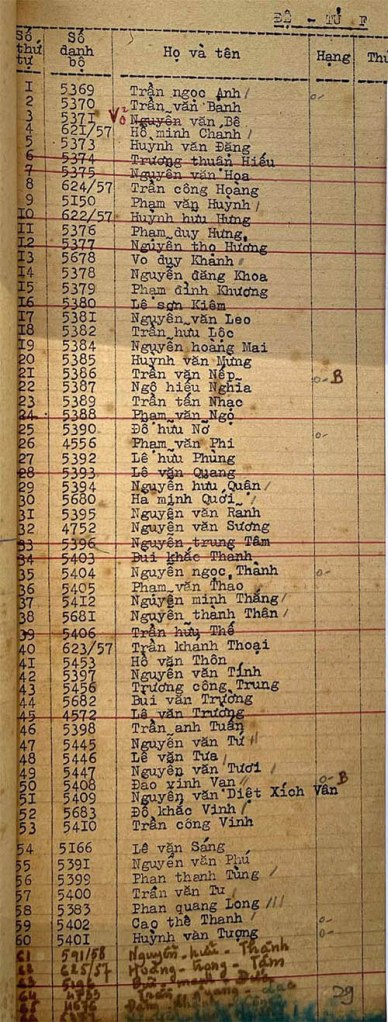 ĐỆ - TỬ F
Số thứ tự Số danh bộ Họ và tên Hạng Thứ
1 5369 Trần ngọc Anh / o-
2 5370 Trần văn Banh
3 5371 Võ Nguyên văn Bê
4 621/57 Hồ minh Chanh /
5 5373 Huỳnh văn Đăng
6 5374 Trương thuần Hiếu
7 5375 Nguyễn văn Họa
8 624/57 Trần công Hoàng
9 5150 Phạm văn Huỳnh /
10 622/57 Huỳnh hữu Hưng
11 5376 Phạm duy Hưng
12 5377 Nguyễn thọ Hương
13 5678 Vo duy Khánh
14 5378 Nguyễn đăng Khoa
15 5379 Phạm đình Khương
16 5380 Lê sơn Kiêm
17 5381 Nguyễn văn Leo
18 5382 Trần hưu Lộc
19 5384 Nguyễn hoàng Mai
20 5385 Huỳnh văn Mưng
21 5386 Trần văn Nếp
22 5387 Ngô hiếu Nghĩa o- B
23 5389 Trần tấn Nhạc
24 5388 Phạm văn Ngỏ
25 5390 Đỗ hưu Nở
26 4556 Phạm văn Phi o-
27 5392 Lê hưu Phùng
28 5393 Lê văn Quang
29 5394 Nguyễn hưu Quân /
30 5680 Ha minh Quới /
31 5395 Nguyễn văn Ranh
32 4752 Nguyễn văn Sương
33 5396 Nguyễn trung Tâm
34 5403 Bui khắc Thanh
35 5404 Nguyễn ngọc Thành o-
36 5405 Phạm văn Thao /
37 5412 Nguyễn minh Thắng /
38 5681 Nguyễn thanh Thân /
39 5406 Trần hữu Thế
40 623/57 Trần khanh Thoại
41 5453 Hồ văn Thôn
42 5397 Nguyễn văn Tính
43 5456 Trương công Trung
44 5682 Bui văn Trường
45 4572 Lê văn Trường
46 5398 Trần anh Tuấn
47 5445 Nguyễn văn Tư //
48 5446 Lê văn Tưa /
49 5447 Nguyễn văn Tươi /
50 5408 Đao xinh Vạn / o- B
51 5409 Nguyễn văn Diệt Xích Vân
52 5683 Đỗ khắc Vinh /
53 5410 Trần công Vinh
54 5166 Lê văn Sáng
55 5391 Nguyễn văn Phú
56 5399 Phan thanh Tùng /
57 5400 Trần văn Tư /
58 5383 Phan quang Long ///
59 5402 Cao thế Thanh / o-
60 5401 Huỳnh văn Tượng o-
61 591/58 Nguyễn - hữu - Thành
62 625/57 Hoàng - trọng - Tâm
63
64
29